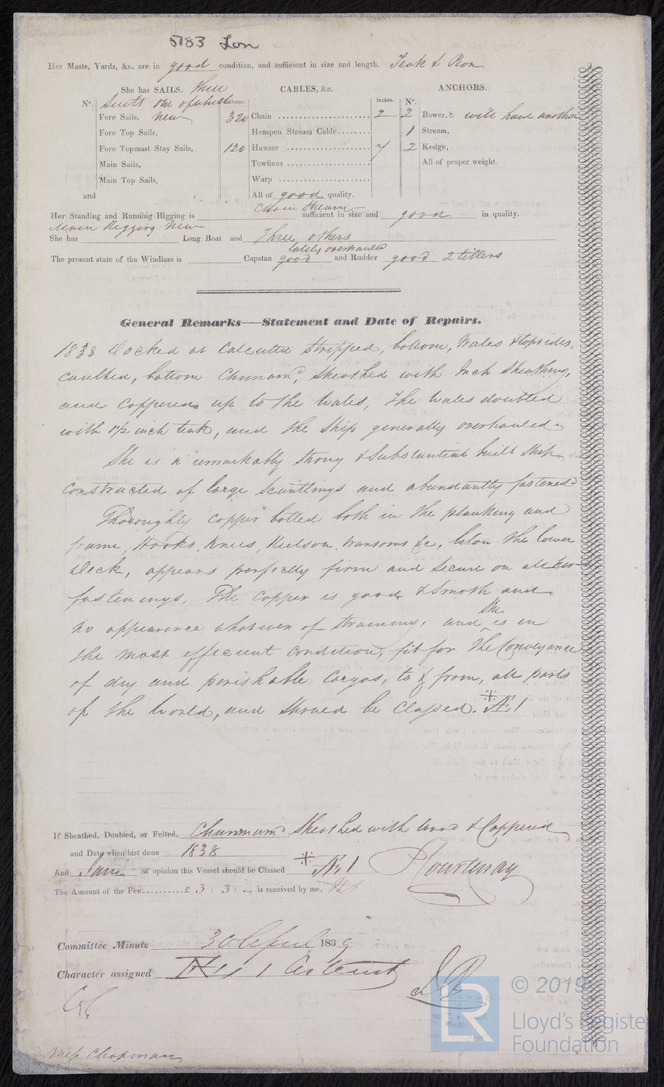 5183 Lon
Her Masts, Yards, &c. are in good condition, and sufficient in size and length. Teak &
She has SAILS. three CABLES, &c. ANCHORS.
Nº. Suits one of which Inches. Nº.
Fore Sails, New 320 Chain 2 2 Bower,s will have another
Fore Top Sails, Hempen Stream Cable 1 Stream,
Fore Topmast Stay Sails, 120 Hawser 7 2 Kedge,
Main Sails, Towlines All of proper weight.
Main Top Sails, Warp
and All of good quality.
Chain Stream
Her Standing and Running Rigging is sufficient in size and good in quality.
Main Rigging New
She has Long Boat and Three others
lately overhauled
The present state of the Windlass is Capstan good and Rudder good 2 tillers
General Remarks—Statement and Date of Repairs.
1838 Docked at Calcutta Stripped, bottom, Wales & topsides,
caulked, bottom Chunamd, Sheathed with Inch Sheathing,
and Coppered up to the Wales, The Wales doubled
with 1½ inch teak, and the Ship generally overhauled.
She is a remarkably strong & Substantial built Ship,
Constructed of large Scantlings and abundantly fastened
Thoroughly Copper bolted both in the planking and
frame, Hooks, Knees, Keelson, transoms &c, below the lower
Deck, appears perfectly firm and secure on all her
fastenings. The Copper is good & Smooth and
no appearance whatever of straining, and is in
the most efficient condition, fit for the Conveyance
of dry and perishable Cargos, to & from, all parts
of the World, and should be Classed. A1
If Sheathed, Doubled, or Felted, Chunamd Sheathed with wood & Coppered
and Date when last done 1838
And I am of opinion this Vessel should be Classed A1 Courtenay
The Amount of the Fee £ 3 : 3 : is received by me,
Committee Minute 30 April 1839
Character assigned 1
Chapman
© 2019
LR Lloyd's Register
Foundation